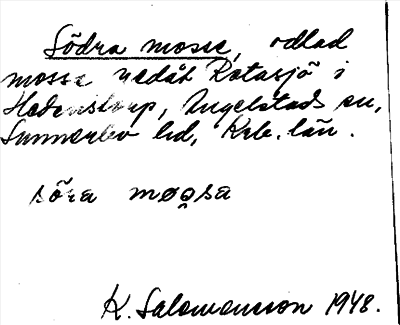 Södra mosse, odlad
mosse nedåt Rotasjö i
Hedenstorp, Angelstads sn,
Sunnerbo hd, Krb. län.
söra mɷsa
K. Salomonsson 1948.